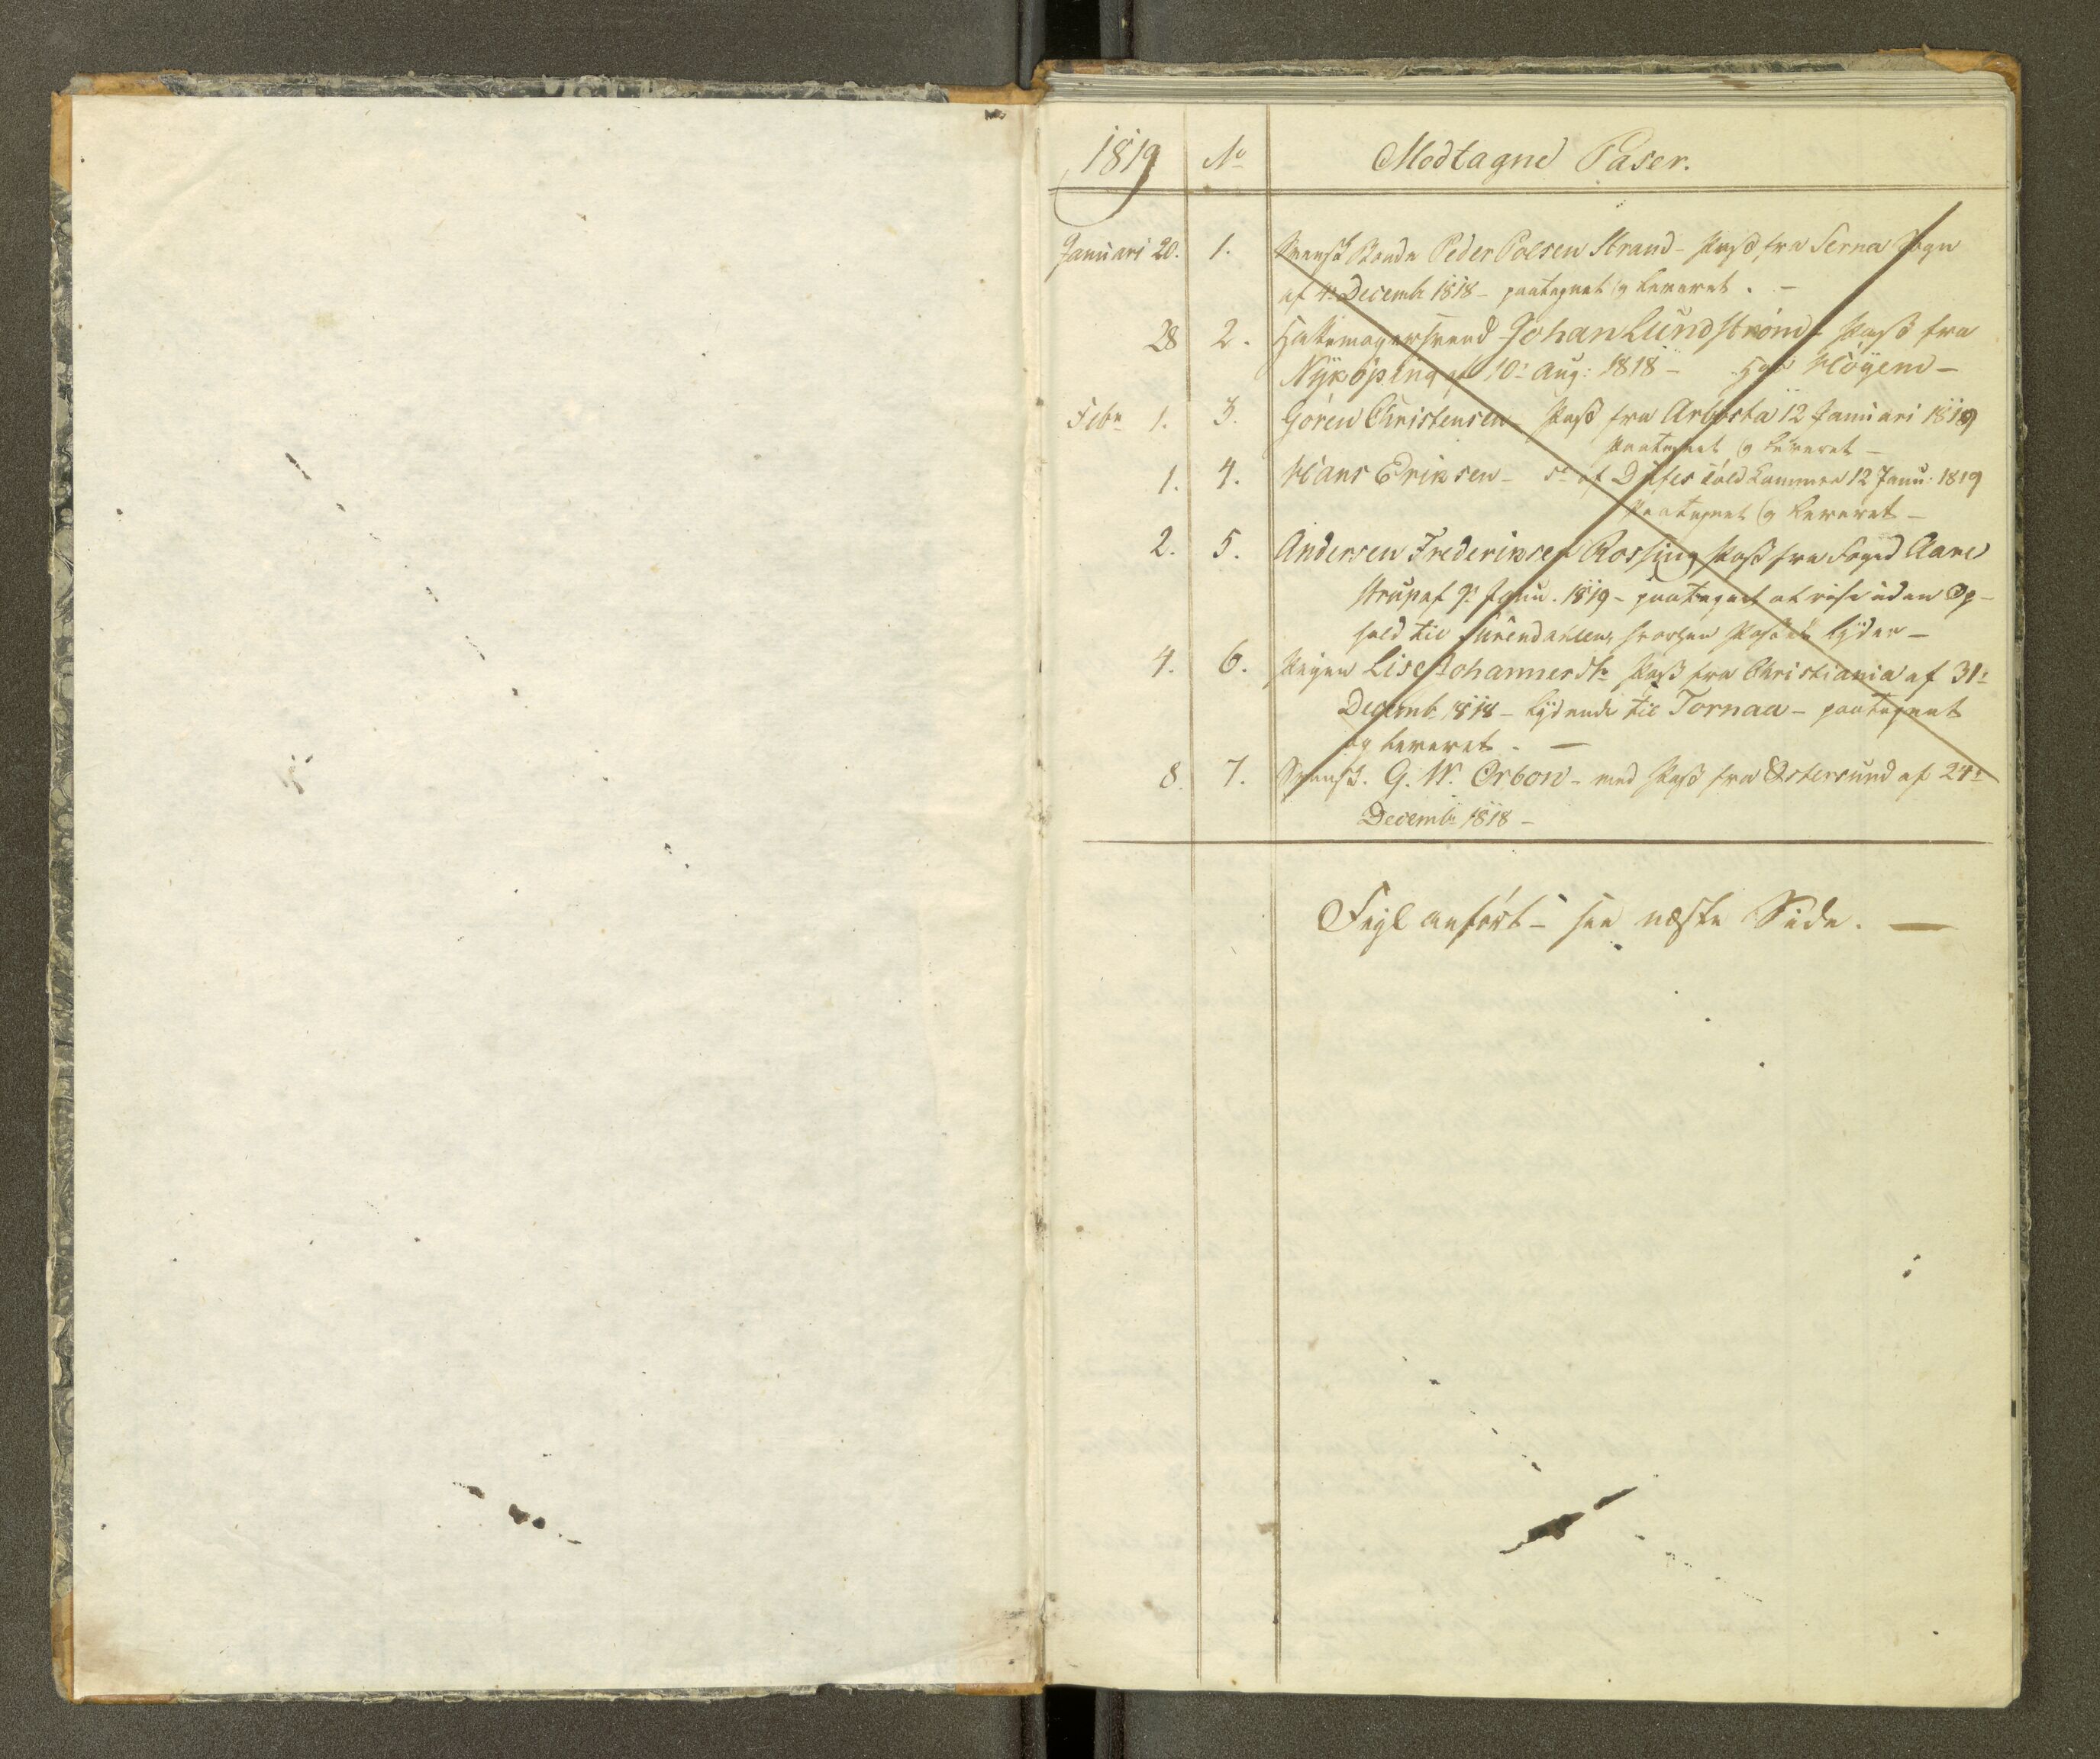 1819 No Modtagne Paser.
Januari 20. 1. Svensk Bonde Peder Polsen Strand - Pass fra Serna Sogn
af 4de Decembr 1818 - paategnet og leveret . -
28 2. Hattemagersvend Johan Lundström - Pass fra
Nyköping af 10: Aug: 1818 - Höyem -
Febr 1. 3. Gören Christensen - Pass fra 12 Januari 1819
Paategnet og leveret -
1. 4. Hans Eriksen - af 12 Janu: 1819
Paategnet og leveret -
2. 5. Andersen Frederiksen Rossing Pass fra Foged Aare
strup af 9: Janu. 1819 - paategnet at reise uden Op-
hold til Surendahlen, hvorhen Passet lyder -
4. 6. Pigen Lise Johannesdtr Pass fra Christiania af 31:
Decembr 1818 - lydende til Tornaa - paategnet
og leveret . -
8. 7. Svensk. G. W. Orbon - med Pass fra Østersund af 24:
Decembr 1818 -
Fejl anført - see næste Side. -